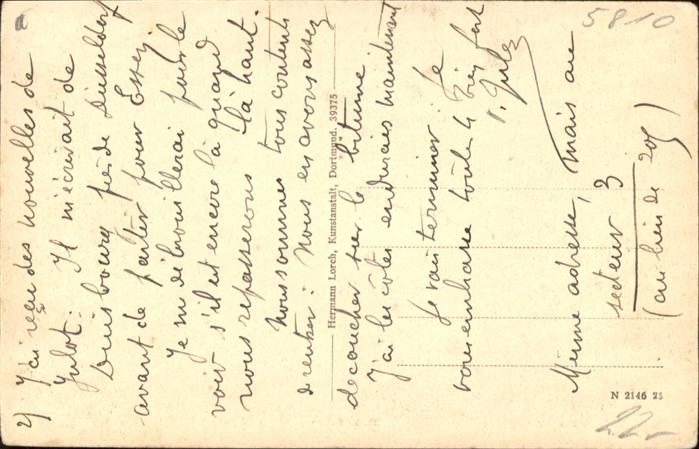 2) J'ai reçu des nouvelles de
Julot. Il m'écrivait de
Duisbourg près de Dusseldorf
avant de partir pour Essen
Je me débrouillerai pour le
voir s'il est encore là quand
nous repasserons là haut.
Nous sommes tous contents
de rentrer : nous en avons assez
de coucher sur le bitume
J'ai les côtes endurcies maintenant
Je vais terminer. Je
vous embrasse toutes le bien fort
Jules
Même adresse, mais au
secteur 3
(au lieu de 209)
Hermann Lorch, Kunstanstalt, Dortmund. 39375
N 2146 25
5810
22-